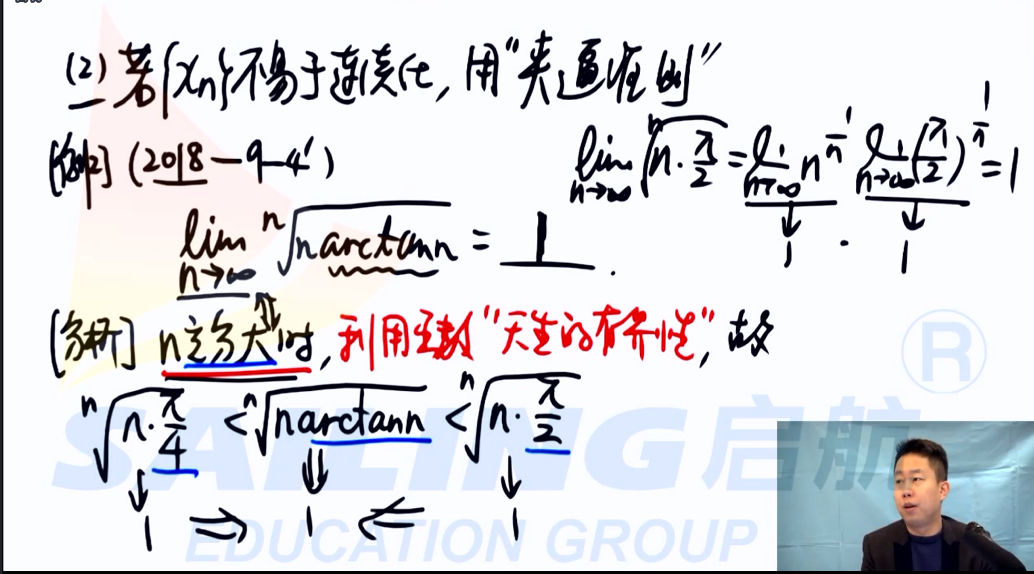 (2) 若{xₙ}不易于连续化, 用"夹逼准则"
[例2] (2018-9-4')
lim n→∞ ⁿ√(n arctan n) = 1.
lim n→∞ ⁿ√(n·π/2) = lim n→∞ n^(1/n) lim n→∞ (π/2)^(1/n) = 1
↓ ↓
1 · 1
[分析] n充分大时, 利用函数"天生的有界性", 故
ⁿ√(n·π/4) < ⁿ√(n arctan n) < ⁿ√(n·π/2)
↓ ⇓ ↓
1 ⇒ 1 ⇐ 1
SAILING 启航 ®
EDUCATION GROUP